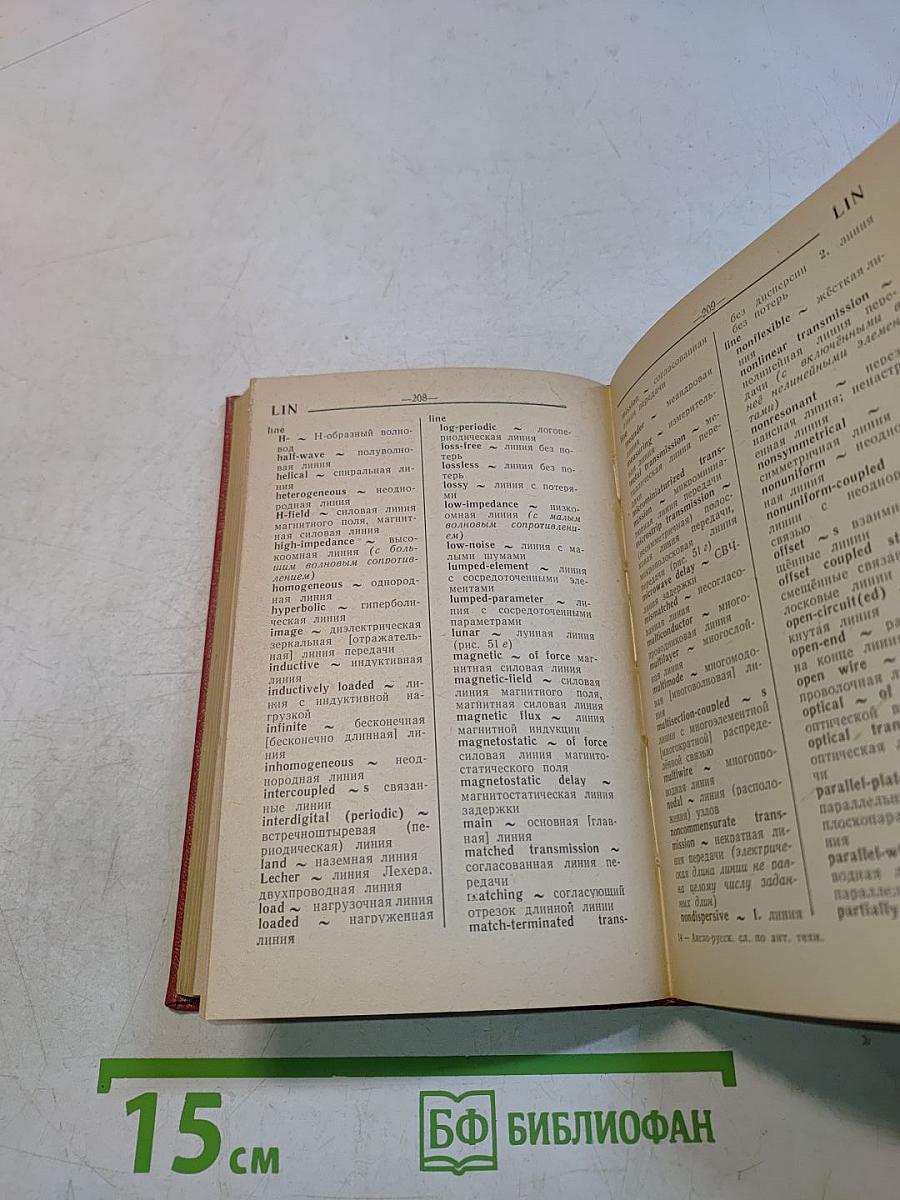 LIN
—208—
line
H- ~ H-образный волно-
вод
half-wave ~ полуволно-
вая линия
helical ~ спиральная ли-
ния
heterogeneous ~ неодно-
родная линия
H-field ~ силовая линия
магнитного поля, магнит-
ная силовая линия
high-impedance ~ высо-
коомная линия (с боль-
шим волновым сопротив-
лением)
homogeneous ~ однород-
ная линия
hyperbolic ~ гиперболи-
ческая линия
image ~ диэлектрическая
зеркальная [отражатель-
ная] линия передачи
inductive ~ индуктивная
линия
inductively loaded ~ ли-
ния с индуктивной на-
грузкой
infinite ~ бесконечная
[бесконечно длинная] ли-
ния
inhomogeneous ~ неод-
нородная линия
intercoupled ~ s связан-
ные линии
interdigital (periodic) ~
встречноштыревая (пе-
риодическая) линия
land ~ наземная линия
Lecher ~ линия Лехера,
двухпроводная линия
load ~ нагрузочная линия
loaded ~ нагруженная
линия
line
log-periodic ~ логопе-
риодическая линия
loss-free ~ линия без по-
терь
lossless ~ линия без по-
терь
lossy ~ линия с потеря-
ми
low-impedance ~ низко-
омная линия (с малым
волновым сопротивлени-
ем)
low-noise ~ линия с ма-
лыми шумами
lumped-element ~ линия
с сосредоточенными эле-
ментами
lumped-parameter ~ ли-
ния с сосредоточенными
параметрами
lunar ~ лунная линия
(рис. 51 е)
magnetic ~ of force маг-
нитная силовая линия
magnetic-field ~ силовая
линия магнитного поля,
магнитная силовая линия
magnetic flux ~ линия
магнитной индукции
magnetostatic ~ of force
силовая линия магнито-
статического поля
magnetostatic delay ~
магнитостатическая линия
задержки
main ~ основная [глав-
ная] линия
matched transmission ~
согласованная линия пе-
редачи
matching ~ согласующий
отрезок длинной линии
match-terminated trans-
—209—
LIN
mission ~ согласованная
линия передачи
meander ~ меандровая
линия
measuring ~ измеритель-
ная линия
metal transmission ~ ме-
таллическая линия пере-
дачи
microminiaturized trans-
mission ~ микроминиа-
тюрная линия передачи
microstrip transmission ~
(несимметричная) полос-
ковая линия передачи,
микрополосковая линия
передачи (рис. 51 г)
microwave delay ~ СВЧ-
линия задержки
mismatched ~ несогласо-
ванная линия
multiconductor ~ много-
проводниковая линия
multilayer ~ многослой-
ная линия
multimode ~ многомодо-
вая [многоволновая] ли-
ния
multisection-coupled ~ s
линии с многоэлементной
[многократной] распреде-
лённой связью
multiwire ~ многопро-
водная линия
nodal ~ линия (располо-
жения) узлов
noncommensurate trans-
mission ~ некратная ли-
ния передачи (электриче-
ская длина линии не рав-
на целому числу задан-
ных длин)
nondispersive ~ 1. линия
14 — Англо-русск. сл. по ант. техн.
без дисперсии 2. линия
без потерь
line
nonflexible ~ жёсткая ли-
ния
nonlinear transmission ~
нелинейная линия пере-
дачи (с включёнными в
неё нелинейными элемен-
тами)
nonresonant ~ нерезо-
нансная линия; ненастр
енная линия
nonsymmetrical ~
симметричная линия
nonuniform ~ неодно
ная линия
nonuniform-coupled
линии с неоднор
связью
offset ~ s взаимн
щённые линии
offset coupled st
смещённые связан
лосковые линии
open-circuit(ed)
кнутая линия
open-end ~ ра
на конце линия
open wire ~
проволочная л
optical ~ of
оптической
optical tran
оптическая л
чи
parallel-plat
параллельн
плоскопара
ния
parallel-wi
водная л
параллел
partially
15 см
БФ БИБЛИОФАН